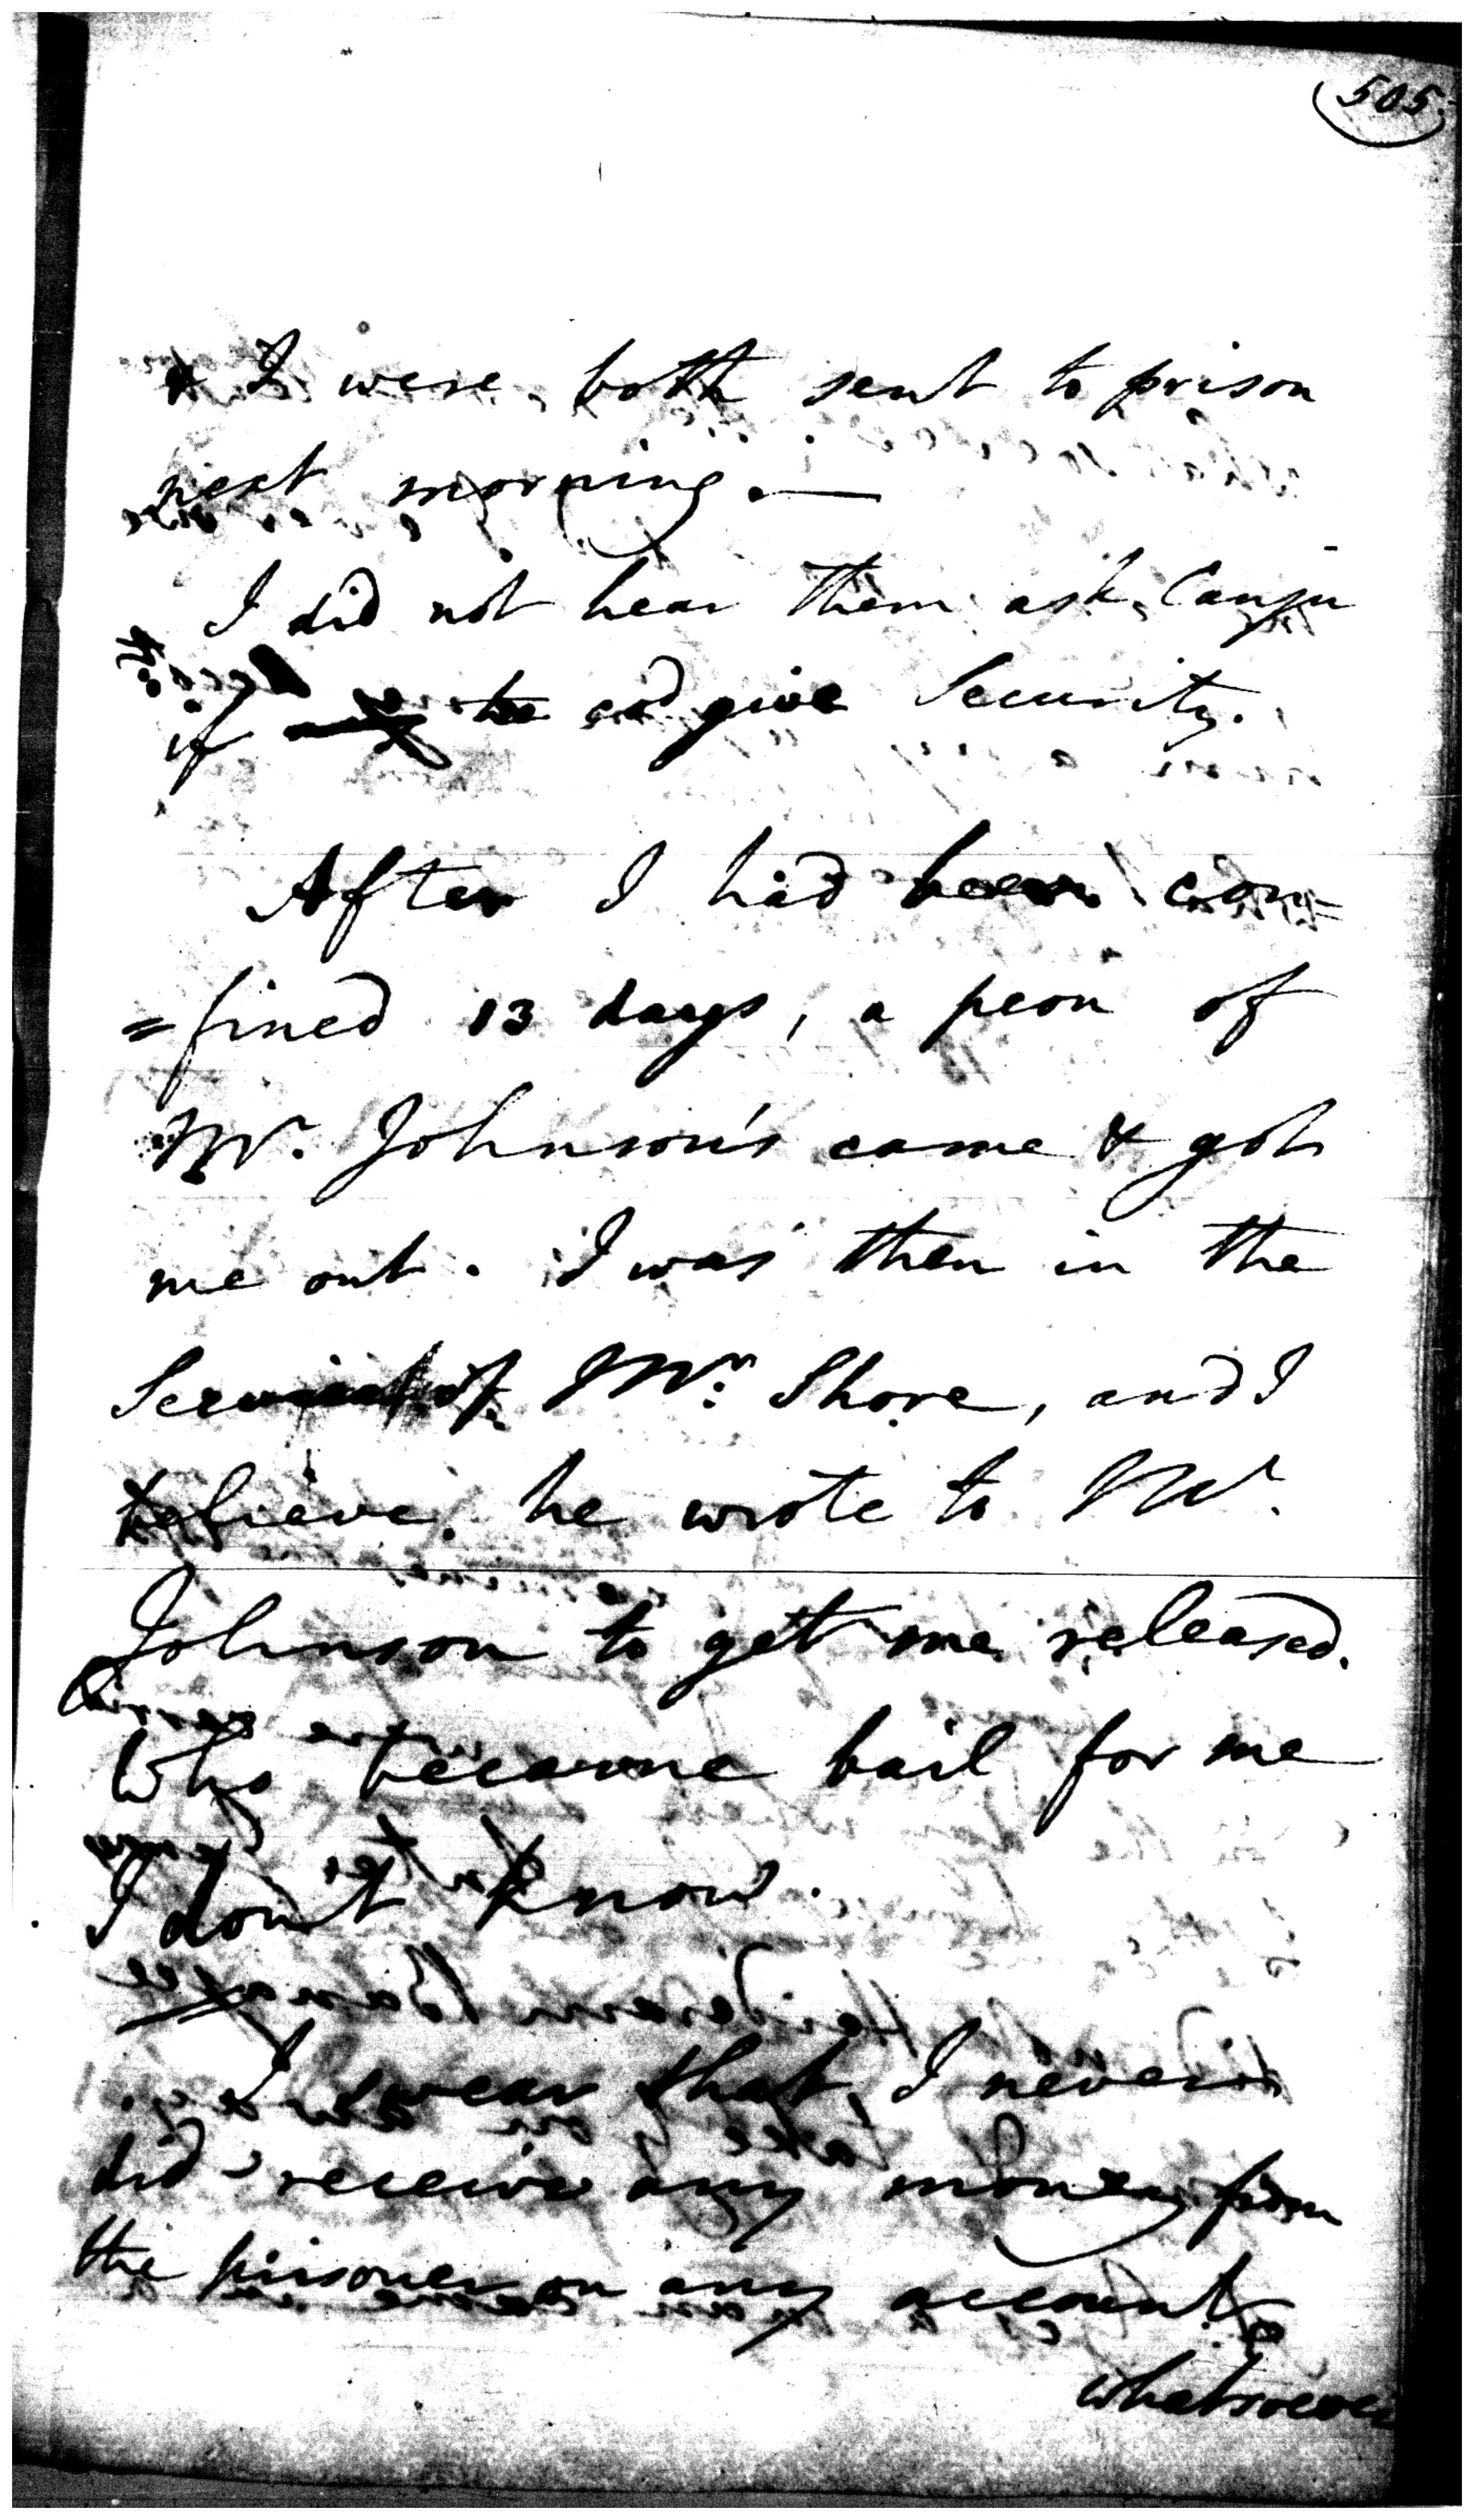 505.
& I were both sent to prison
next morning. —
I did not hear them ask
if he cod give Security.
After I had been con=
=fined 13 days, a peon of
Mr. Johnson's came & got
me out. I was then in the
Service of Mr. Shore, and I
believe he wrote to Mr.
Johnson to get me released.
Who became bail for me
I don't know.
I swear that, I never
did receive any money from
the prisoner on any account
whatsoever